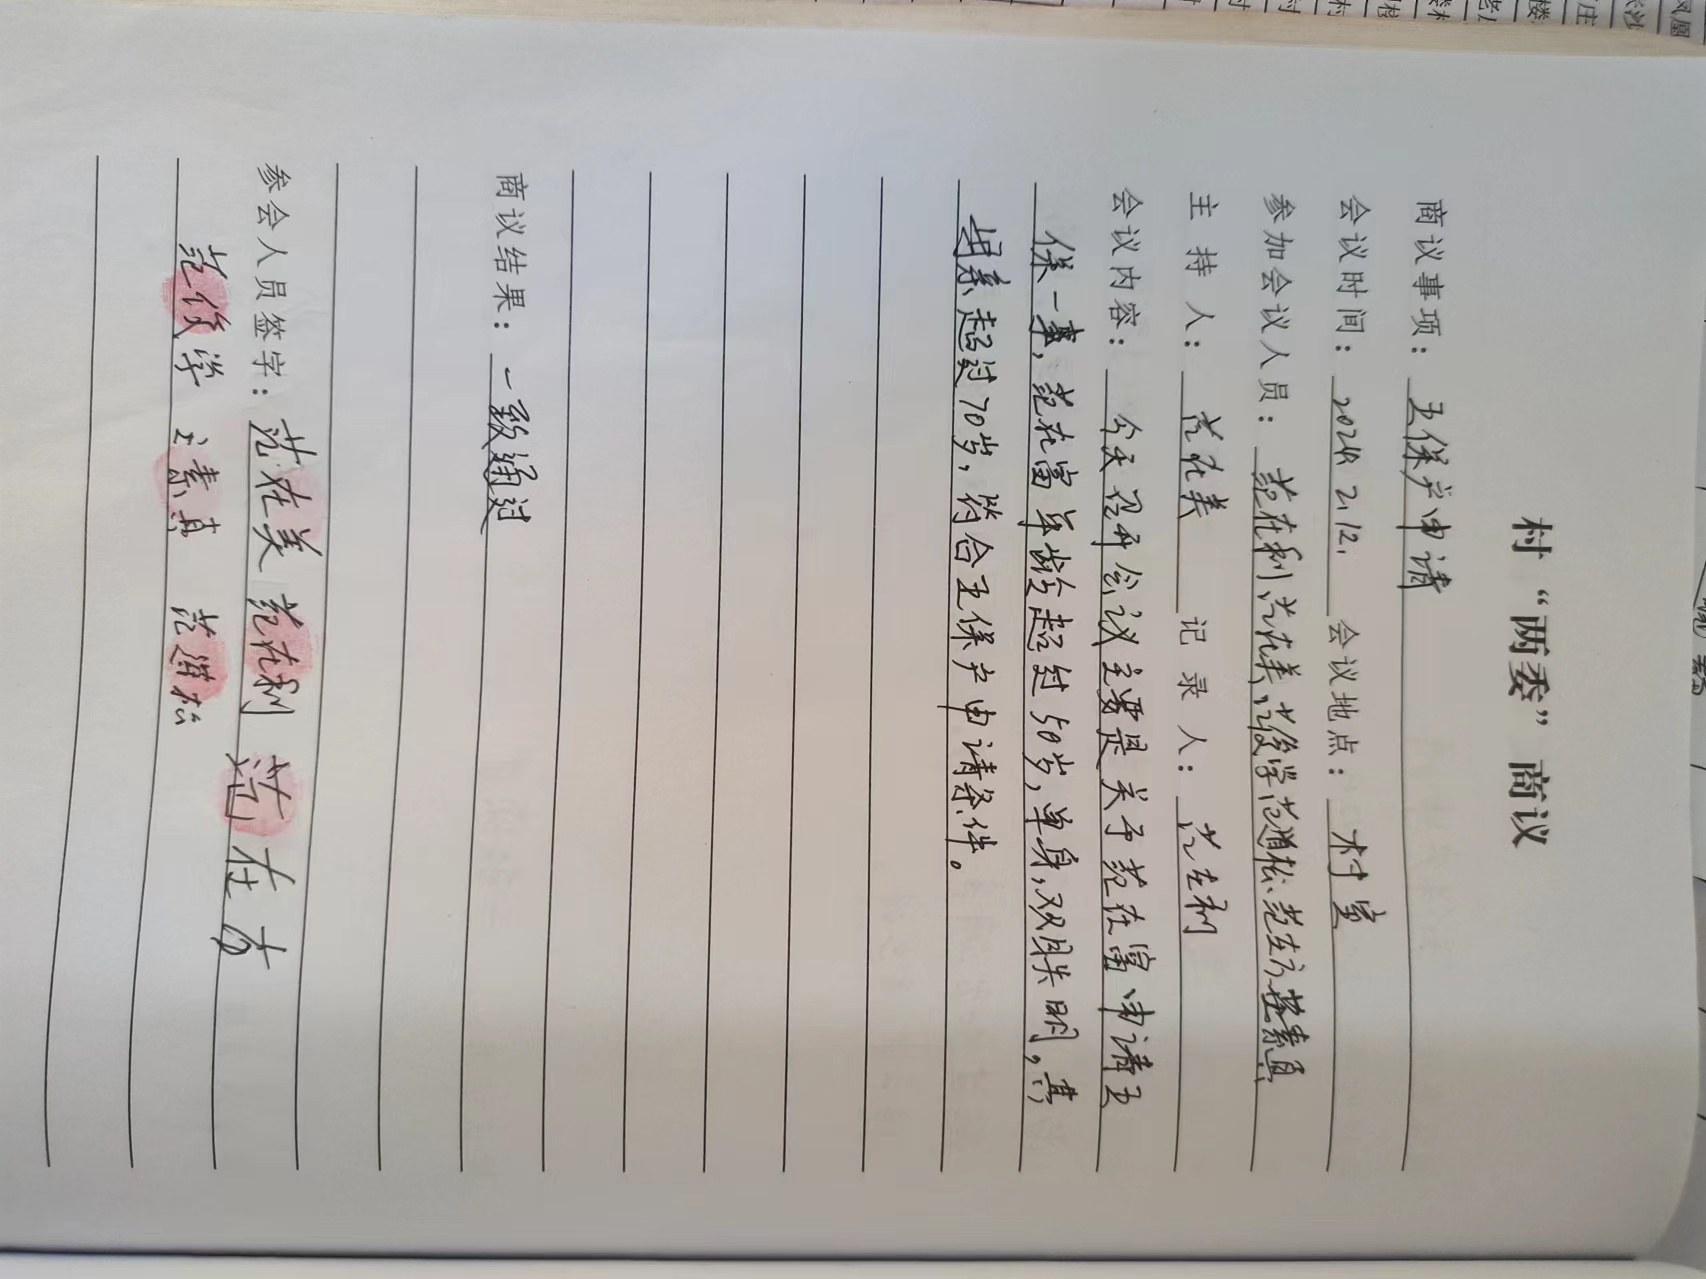 凤凰
长沙
庄
楼
村
村
村
村“两委”商议
商议事项：五保户申请
会议时间：2024.2.12. 会议地点：村室
参加会议人员：范在利 范在美 范俊学 范道松 范在方 王素真
主持人：范在美 记录人：范在利
会议内容：今天召开会议主要是关于范在富申请五
保一事，范在富年龄超过50岁，单身，双目失明。其
母亲超过70岁，符合五保户申请条件。
商议结果：一致通过
参会人员签字：范在美 范在利 范在方
范俊学 王素真 范道松